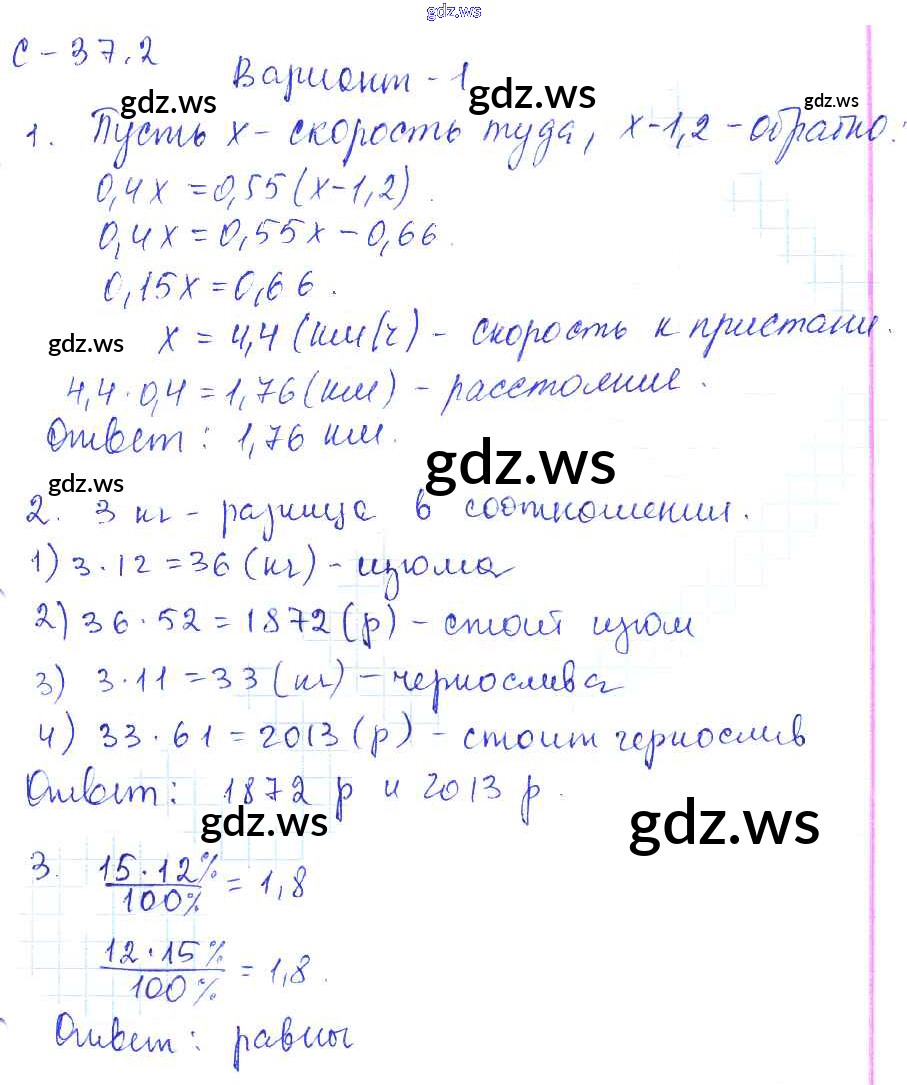 gdz.ws
С-37.2
Вариант-1
gdz.ws gdz.ws gdz.ws
1. Пусть x - скорость туда, x-1,2 - обратно.
0,4x = 0,55(x-1,2).
0,4x = 0,55x - 0,66.
0,15x = 0,66.
gdz.ws
x = 4,4 (км/ч) - скорость к пристани.
4,4 · 0,4 = 1,76 (км) - расстояние.
Ответ: 1,76 км.
gdz.ws
gdz.ws
2. 3 кг - разница в соотношении.
1) 3 · 12 = 36 (кг) - изюма
2) 36 · 52 = 1872 (р) - стоит изюм
3) 3 · 11 = 33 (кг) - чернослива
4) 33 · 61 = 2013 (р) - стоит чернослив
Ответ: 1872 р и 2013 р.
gdz.ws gdz.ws
3. 15 · 12% / 100% = 1,8
12 · 15% / 100% = 1,8.
Ответ: равны